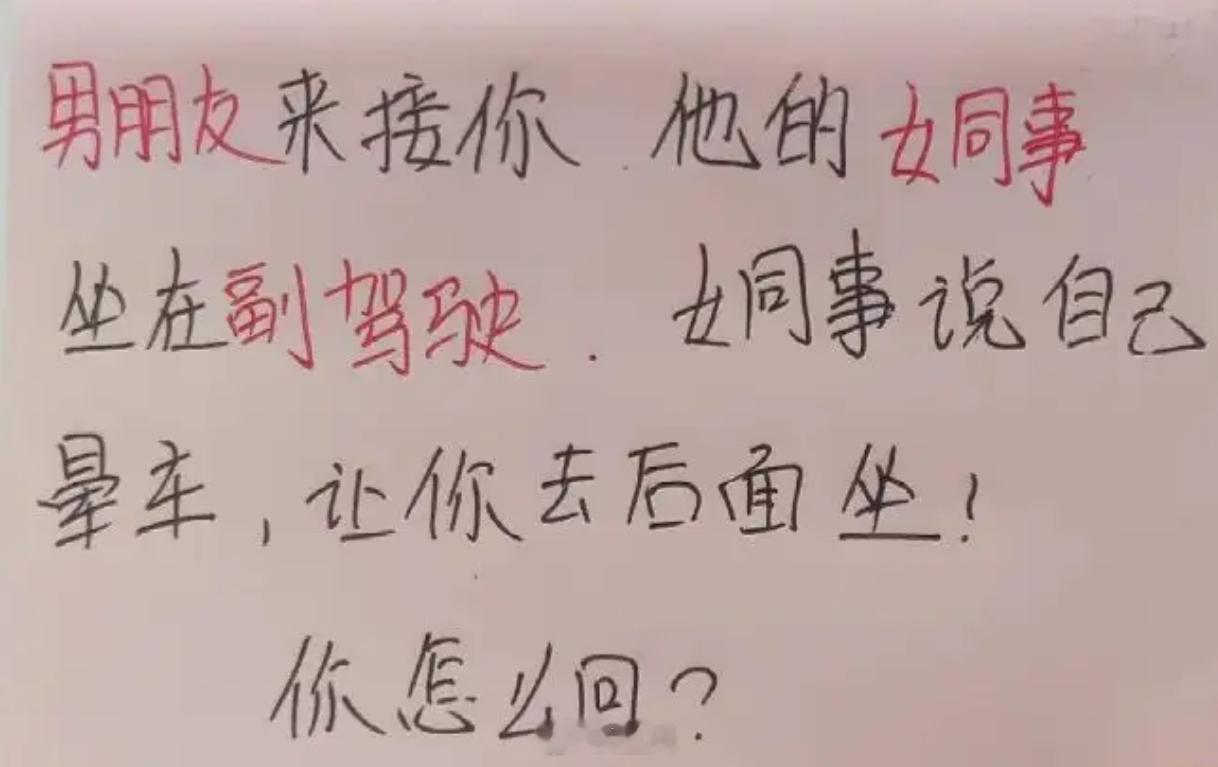 男朋友来接你.他的女同事
坐在副驾驶.女同事说自己
晕车,让你去后面坐!
你怎么回?